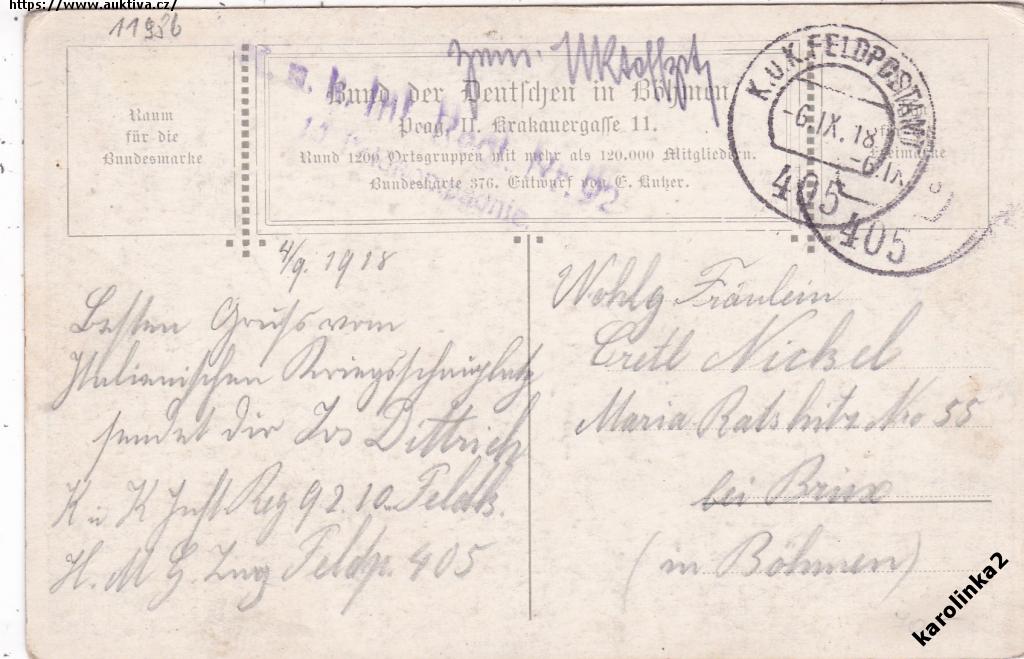 https://www.auktiva.cz/
11936
Raum
für die
Bundesmarke
Bund der Deutschen in Böhmen
Prag, II. Krakauergasse 11.
Rund 1200 Ortsgruppen mit mehr als 120.000 Mitgliedern.
Bundeskarte 376. Entwurf von E. Kutzer.
k. u. k. Inf. Regt. Nr. 92
K.U.K. FELDPOSTAMT
-6.IX.18
405
-6.IX
405
4/9. 1918
Besten Gruß vom
Italienischen Kriegsschauplatz
sendet dir Jos Dittrich
K u K Inft Reg 92 10. Feldk.
H. M. G. Zug Feldp. 405
Wohlg Fräulein
Gretl Nickel
Maria Ratshitz Nro 55
bei Brüx
(in Böhmen)
karolinka2